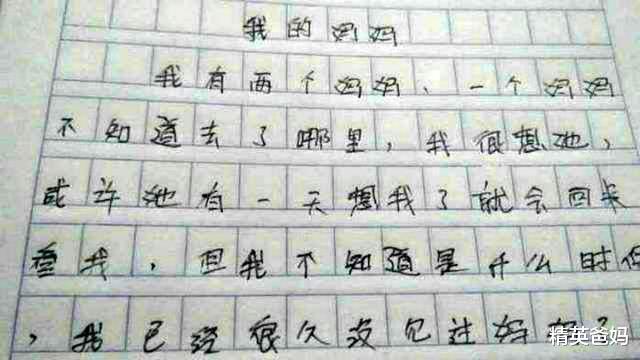 我的妈妈
我有两个妈妈、一个妈妈
不知道去了哪里，我很想她，
或许她有一天想我了就会回来
看我，但我不知道是什么时候
，我已经很久没见过妈妈了
精英爸妈